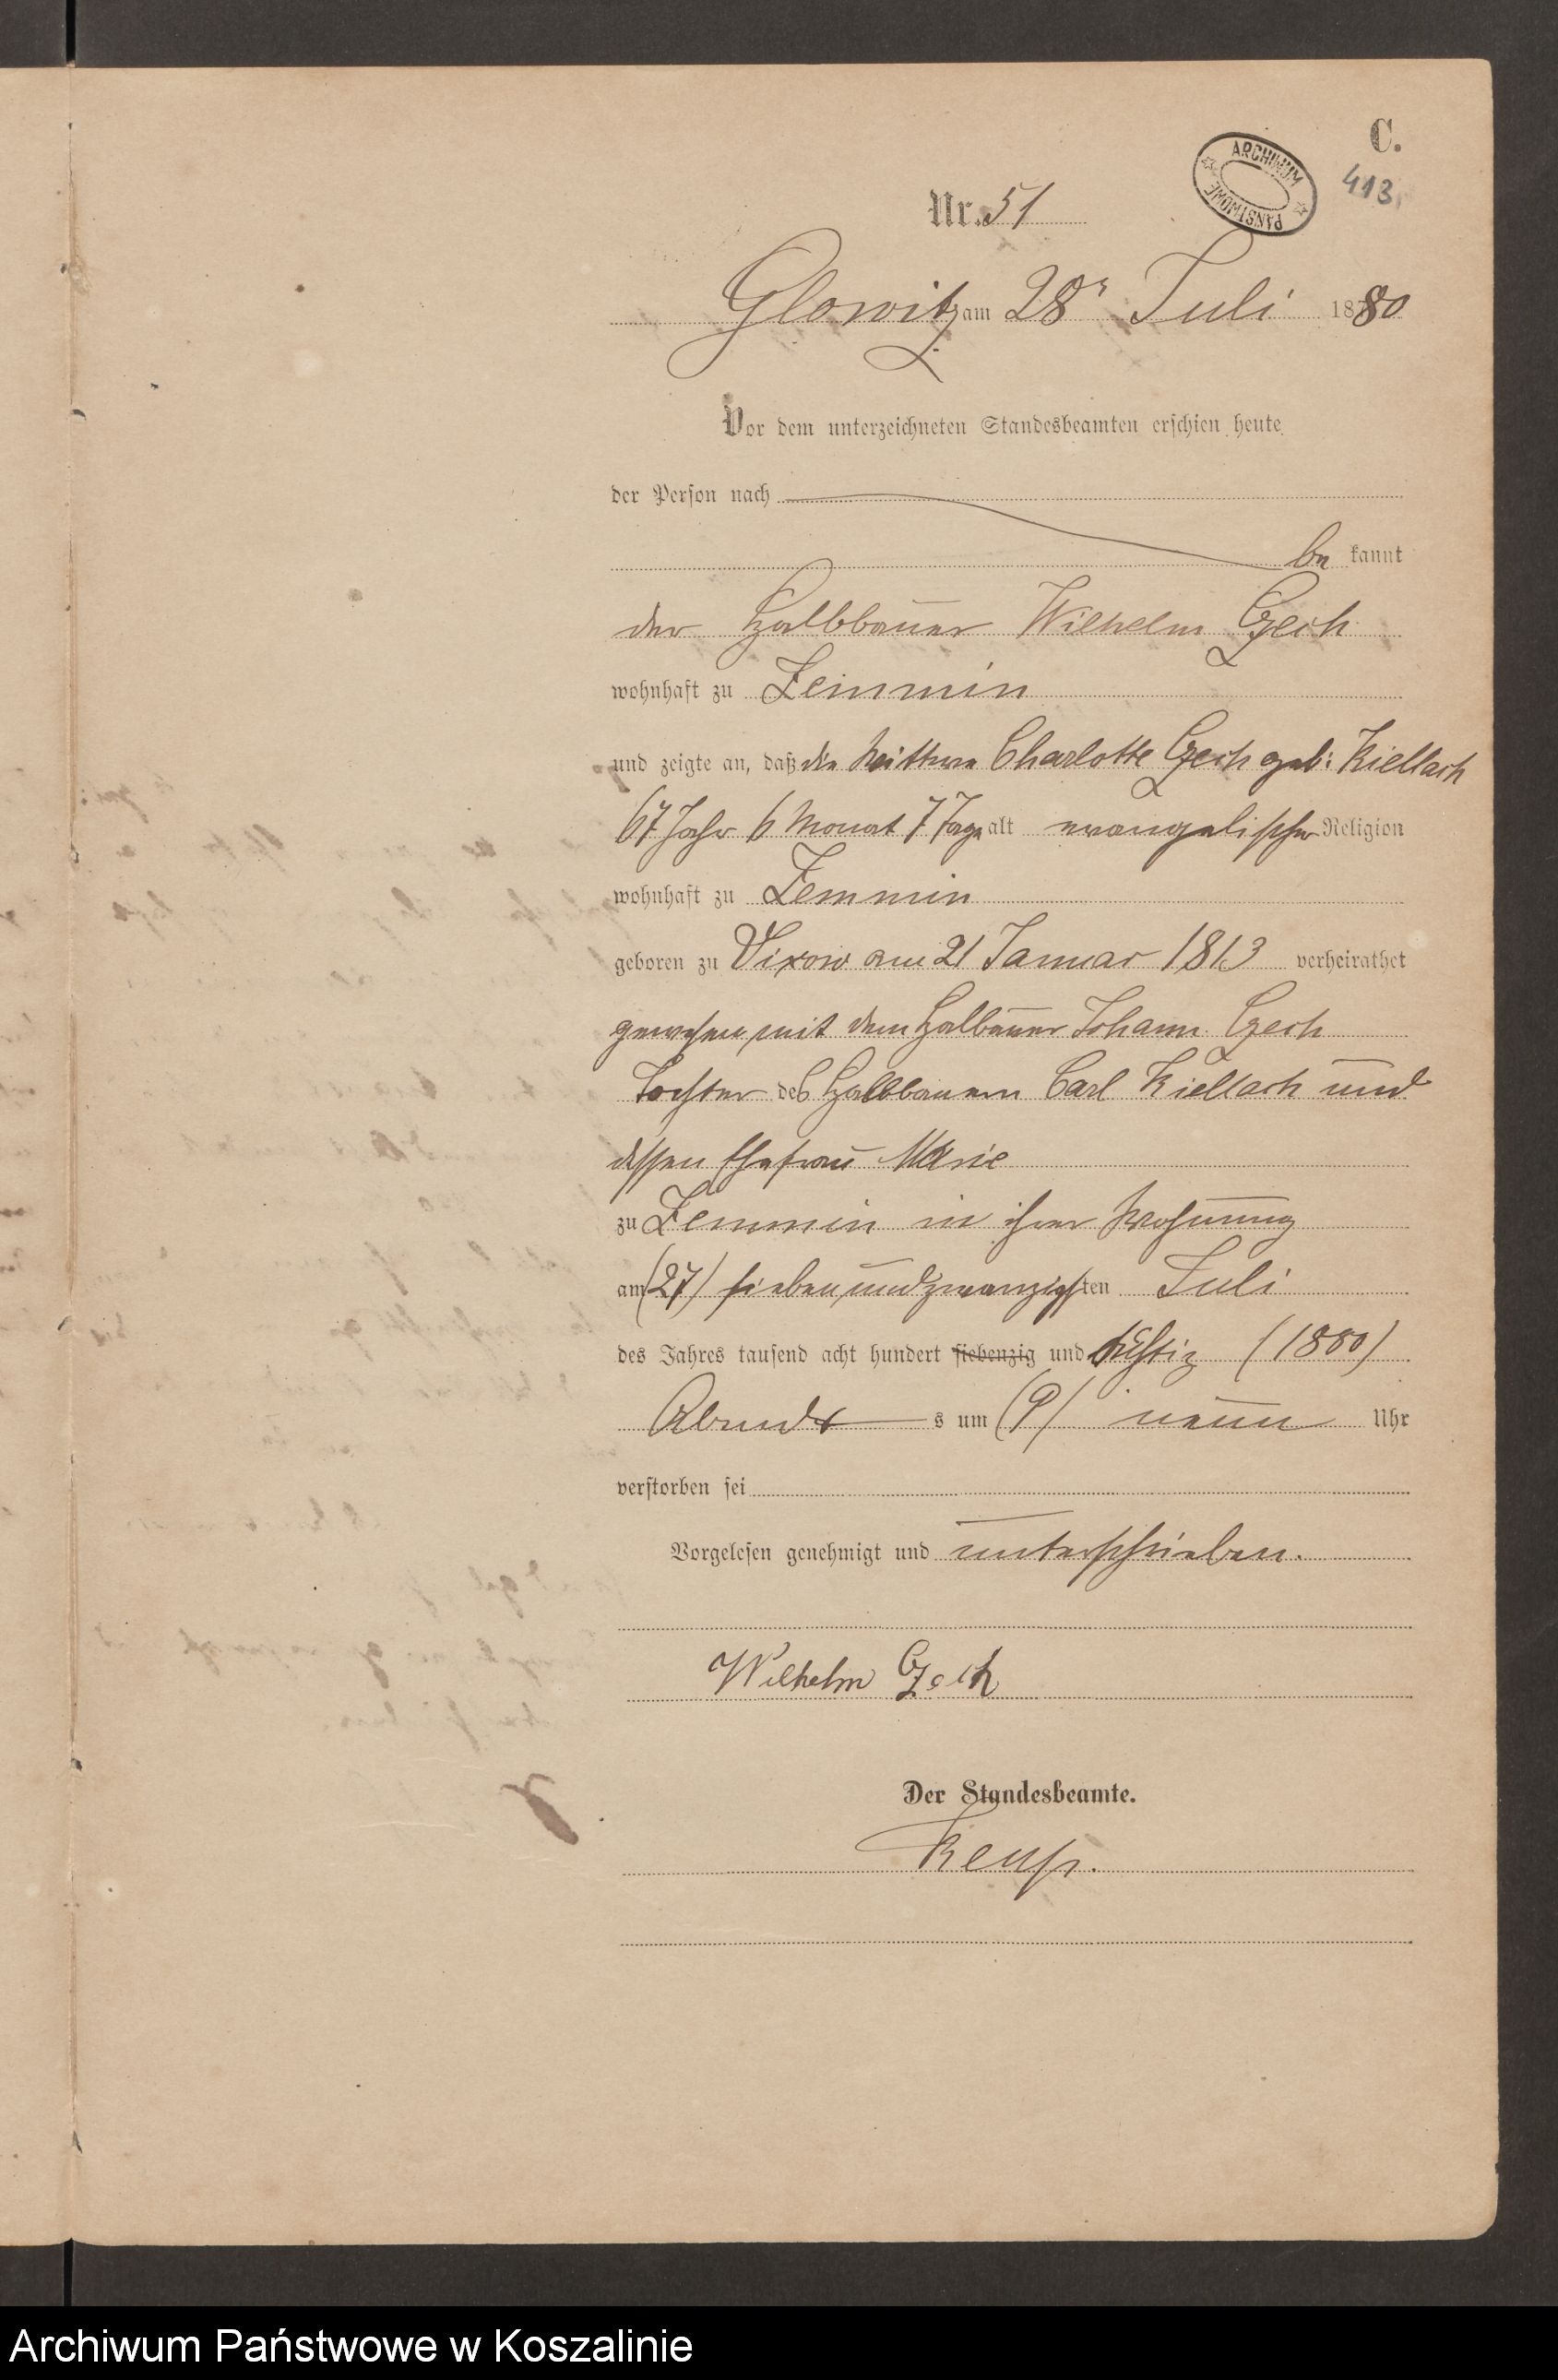 C.
ARCHIWUM PAŃSTWOWE
413
Nr. 51
Glowitz am 28' Juli 18780
Vor dem unterzeichneten Standesbeamten erschien heute,
der Person nach
be kannt
der Halbbauer Wilhelm Czech
wohnhaft zu Zemmin
und zeigte an, daß die Wittwe Charlotte Czech geb: Kiellach
67 Jahr 6 Monat 7 Tage alt evangelischer Religion
wohnhaft zu Zemmin
geboren zu Vixow am 21 Januar 1813 verheirathet
gewesen mit dem Halbauer Johann Czech
Tochter des Halbbauern Carl Kiellach und
dessen Ehefrau Marie
zu Zemmin in ihrer Wohnung
am (27) siebenundzwanzigsten Juli
des Jahres tausend acht hundert siebenzig und achtzig (1880)
Abends s um (9) neun Uhr
verstorben sei
Vorgelesen genehmigt und unterschrieben.
Wilhelm Czech
Der Standesbeamte.
Archiwum Państwowe w Koszalinie